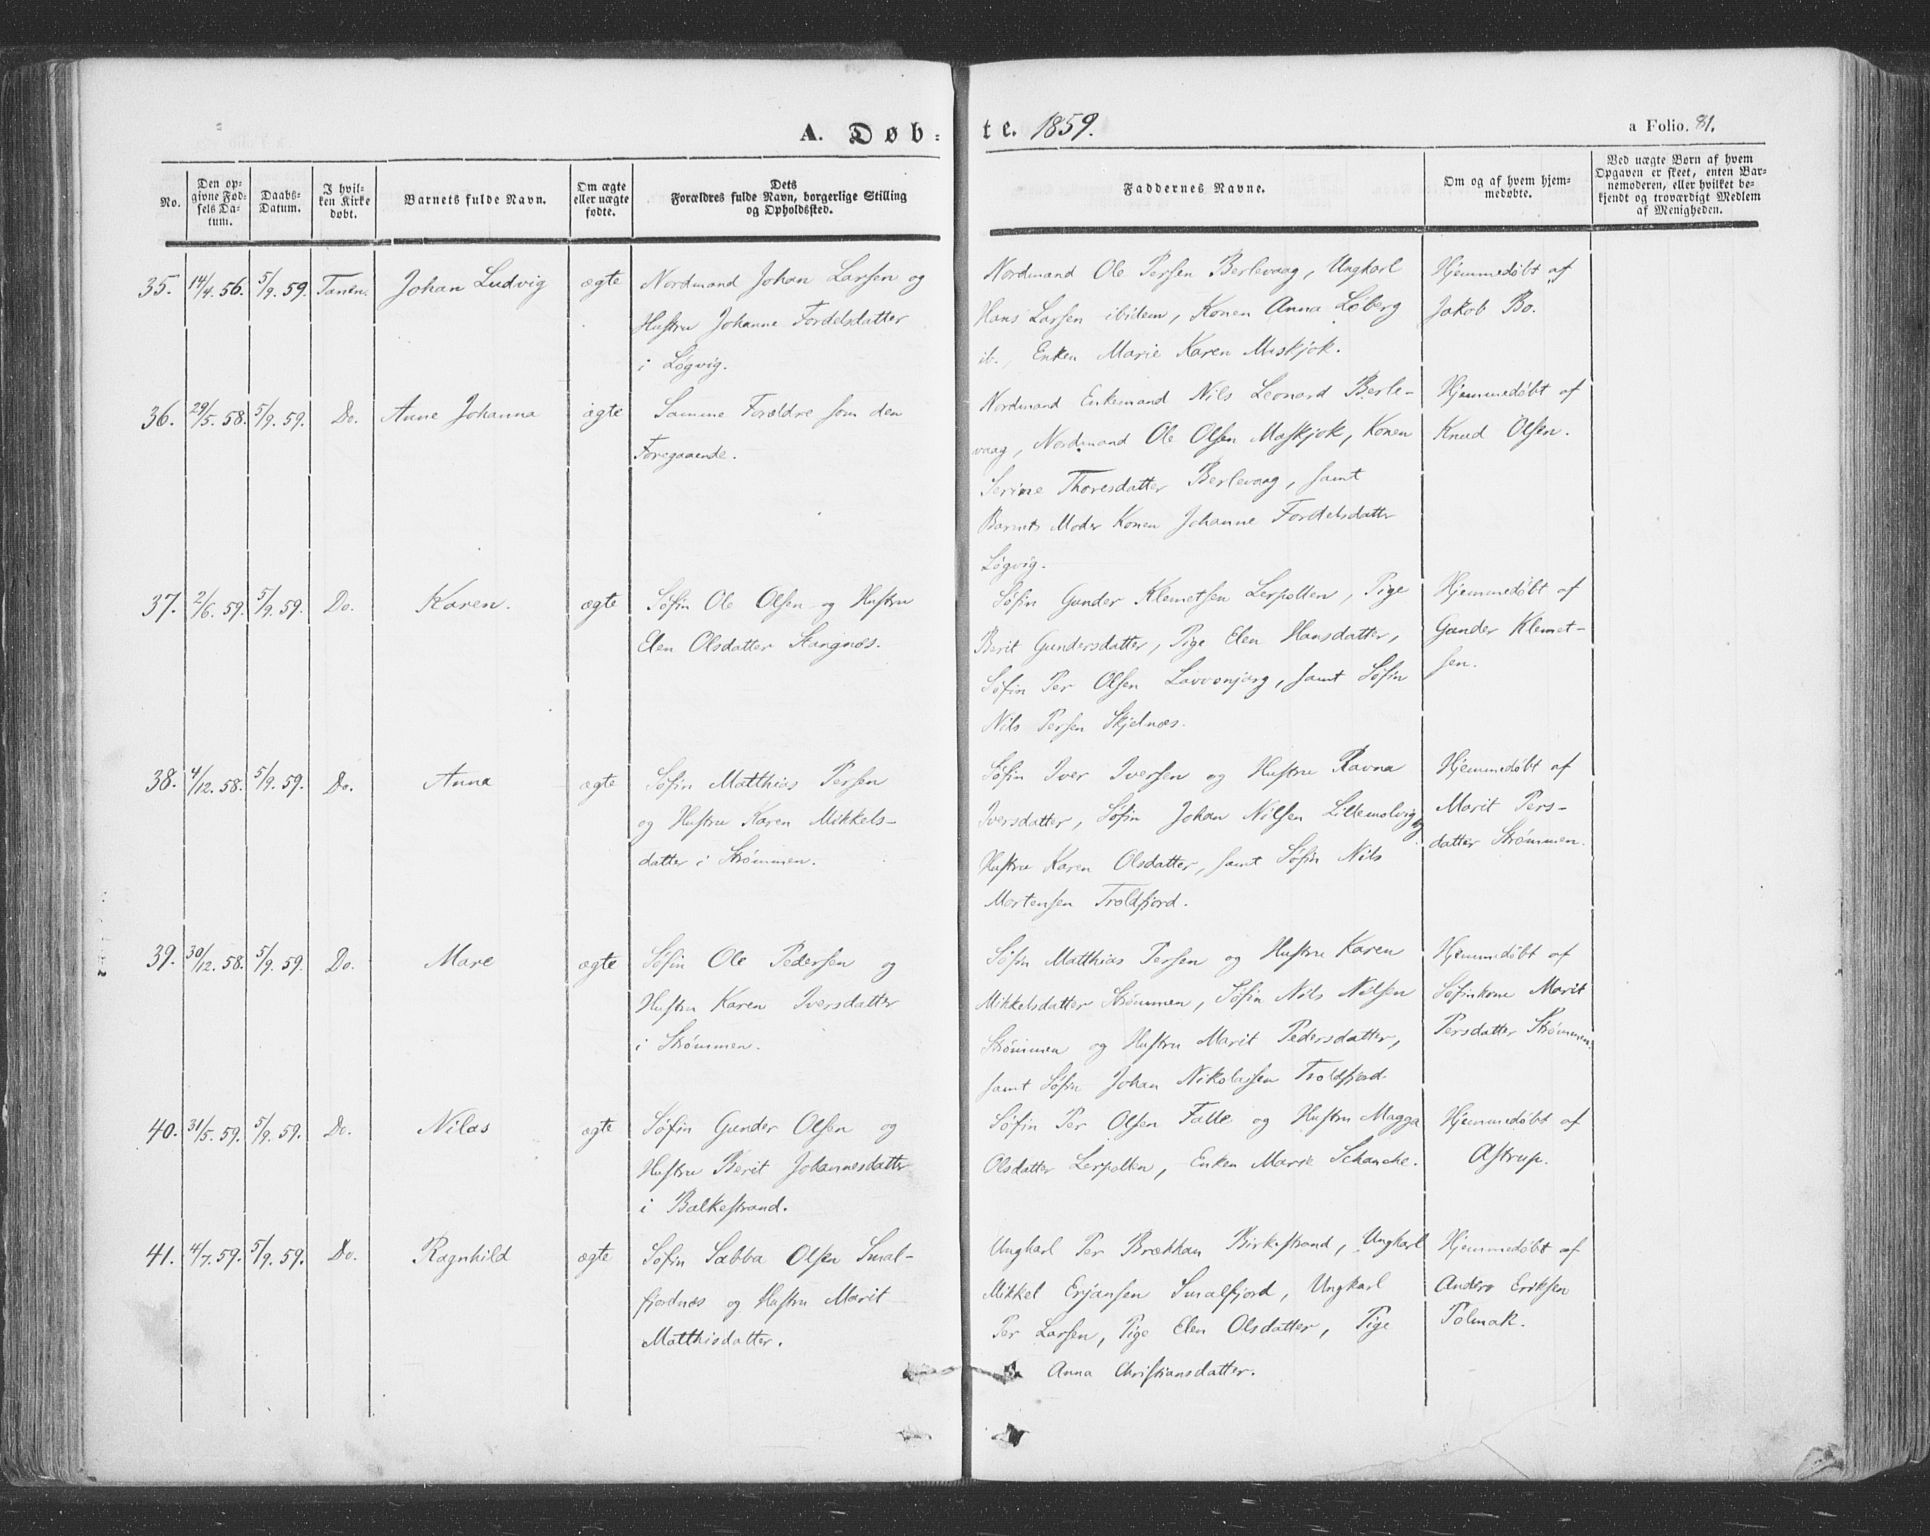 A. Døb-
te. 1859.
a Folio. 81.
No.
Den op-
givne Fød-
sels Da-
tum.
Daabs-
Datum.
I hvil-
ken Kirke
døbt.
Barnets fulde Navn.
Om ægte
eller uægte
fødte.
Dets
Forældres fulde Navn, borgerlige Stilling
og Opholdssted.
Faddernes Navne.
Om og af hvem hjem-
medøbte.
Ved uægte Børn af hvem
Opgaven er skeet, enten Bar-
nemoderen, eller hvilket be-
kjendt og troværdigt Medlem
af Menigheden.
35. 14/4. 56. 5/9. 59. Tanen. Johan Ludvig ægte
Nordmand Johan Larsen og
Hustru Johanne Fordelsdatter
i Løgvig.
Nordmand Ole Persen Berlevaag, Ungkarl
Hans Larsen ibidem, Konen Anna Løberg
ib., Enken Marie Karen Maskjok.
Hjemmedøbt af
Jakob Bo.
36. 29/5. 58. 5/9. 59. Do. Anne Johanna ægte
Samme Forældre som den
Foregaaende.
Nordmand Enkemand Nils Leonard Berle-
vaag, Nordmand Ole Olsen Maskjok, Konen
Serine Thoresdatter Berlevaag, samt
Barnets Moder Konen Johanne Fordelsdatter
Løgvig.
Hjemmedøbt af
Knud Olsen.
37. 2/6. 59. 5/9. 59. Do. Karen. ægte
Søfin Ole Olsen og Hustru
Elen Olsdatter Stangnæs.
Søfin Gunder Klemetsen Lerpollen, Pige
Berit Gundersdatter, Pige Elen Hansdatter,
Søfin Per Olsen Lavvonjarg, samt Søfin
Nils Persen Skjelnæs.
Hjemmedøbt af
Gunder Klemet-
sen.
38. 4/12. 58. 5/9. 59. Do. Anna ægte
Søfin Matthias Persen
og Hustru Karen Mikkels-
datter i Strømmen.
Søfin Iver Iversen og Hustru Ravna
Iversdatter, Søfin Johan Nilsen Lillemolvig og
Hustru Karen Olsdatter, samt Søfin Nils
Mortensen Troldfjord.
Hjemmedøbt af
Marit Pers-
datter Strømmen.
39. 30/12. 58. 5/9. 59. Do. Mare ægte
Søfin Ole Pedersen og
Hustru Karen Iversdatter
i Strømmen.
Søfin Matthias Persen og Hustru Karen
Mikkelsdatter Strømmen, Søfin Nils Nilsen
Strømmen og Hustru Marit Pedersdatter,
samt Søfin Johan Nikolaisen Troldfjord.
Hjemmedøbt af
Søfinkone Marit
Persdatter Strømmen.
40. 31/5. 59. 5/9. 59. Do. Nilas ægte
Søfin Gunder Olsen og
Hustru Berit Johannesdatter
i Balkestrand.
Søfin Per Olsen Falle og Hustru Magga
Olsdatter Lerpollen, Enken Marie Schanche.
Hjemmedøbt af
Astrup.
41. 4/7. 59. 5/9. 59. Do. Ragnhild ægte
Søfin Sabba Olsen Smal-
fjordnæs og Hustru Marit
Matthisdatter.
Ungkarl Per Brækkan Birkestrand, Ungkarl
Mikkel Erjansen Smalfjord, Ungkarl
Per Larsen, Pige Elen Olsdatter, Pige
Anna Christiansdatter.
Hjemmedøbt af
Anders Eriksen
Polmak.